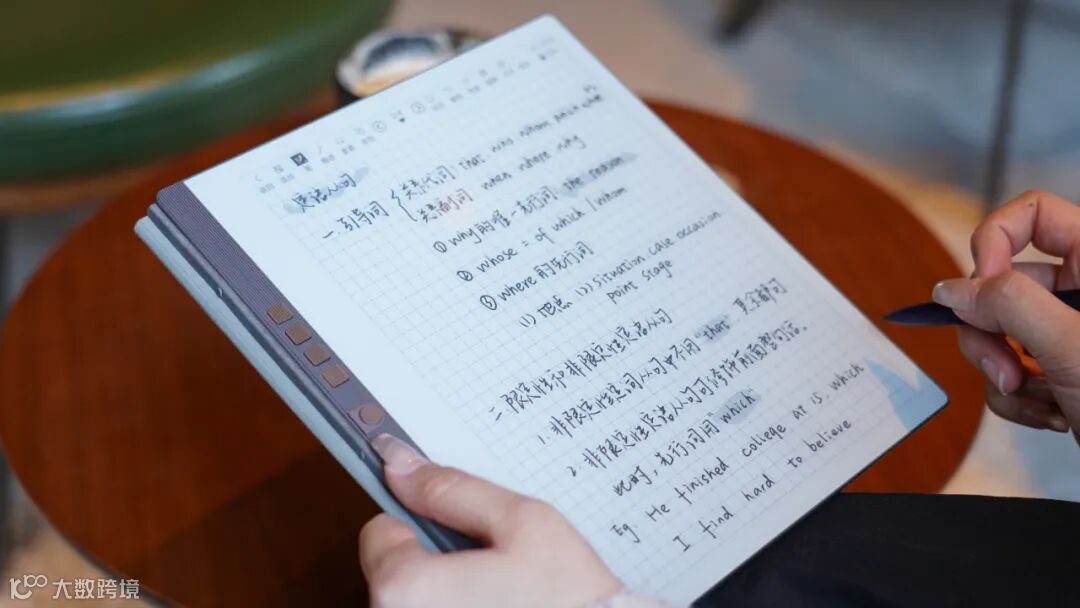 定语从句
一.引导词 { 关系代词 that who whom which whose as
关系副词 when where why
① why的唯一先行词: the reason
② whose = of which / whom
③ where的先行词
(1) 地点 (2) situation case occasion
point stage
二.限定性和非限定性定语从句
1. 非限定性定语从句中不用"that"
2. 非限定性定语从句可修饰前面整句话.
此时,先行词用"which"
Eg He finished college at 15, which
I find hard to believe
大数跨境